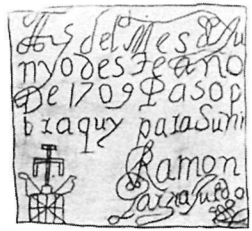 del Mes de Ju
nyo deste ano
De 1709 Paso p
or aquy para Suñi
Ramon
Garzia Jurado